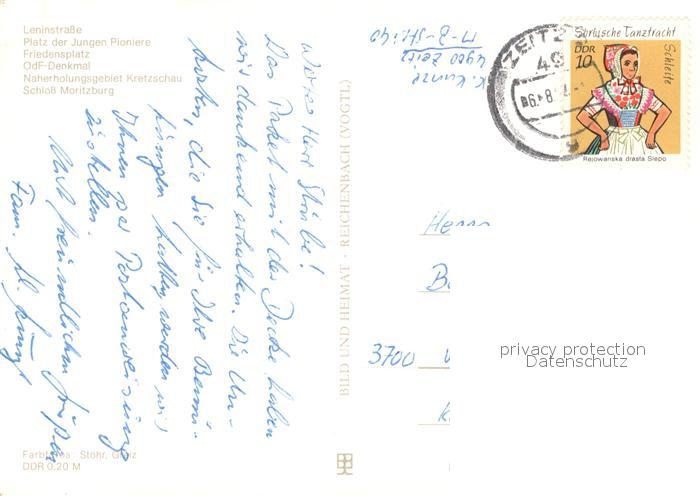 Leninstraße
Platz der Jungen Pioniere
Friedensplatz
OdF-Denkmal
Naherholungsgebiet Kretzschau
Schloß Moritzburg
Werter Herr
Das Paket mit der Decke haben
wir dankend erhalten. Die Un-
kosten, die Sie für Ihre Bemü-
hungen hatten werden wir
Ihnen per Postanweisung
zustellen.
Mit freundlichen Grüßen
Fam.
K. Kunze
4900 Zeitz
BILD UND HEIMAT · REICHENBACH (VOGTL)
ZEITZ
49
Sorbische Tanztracht
DDR
10
Schleife
Rejowanska drasta Slepo
Herrn
3700
privacy protection
Datenschutz
Farbfotos: Stöhr, Greiz
DDR 0,20 M